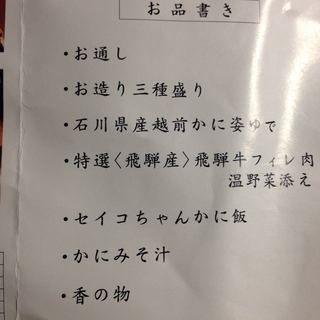 お品書き
・お通し
・お造り三種盛り
・石川県産越前かに姿ゆで
・特選〈飛騨産〉飛騨牛フィレ肉
温野菜添え
・セイコちゃんかに飯
・かにみそ汁
・香の物